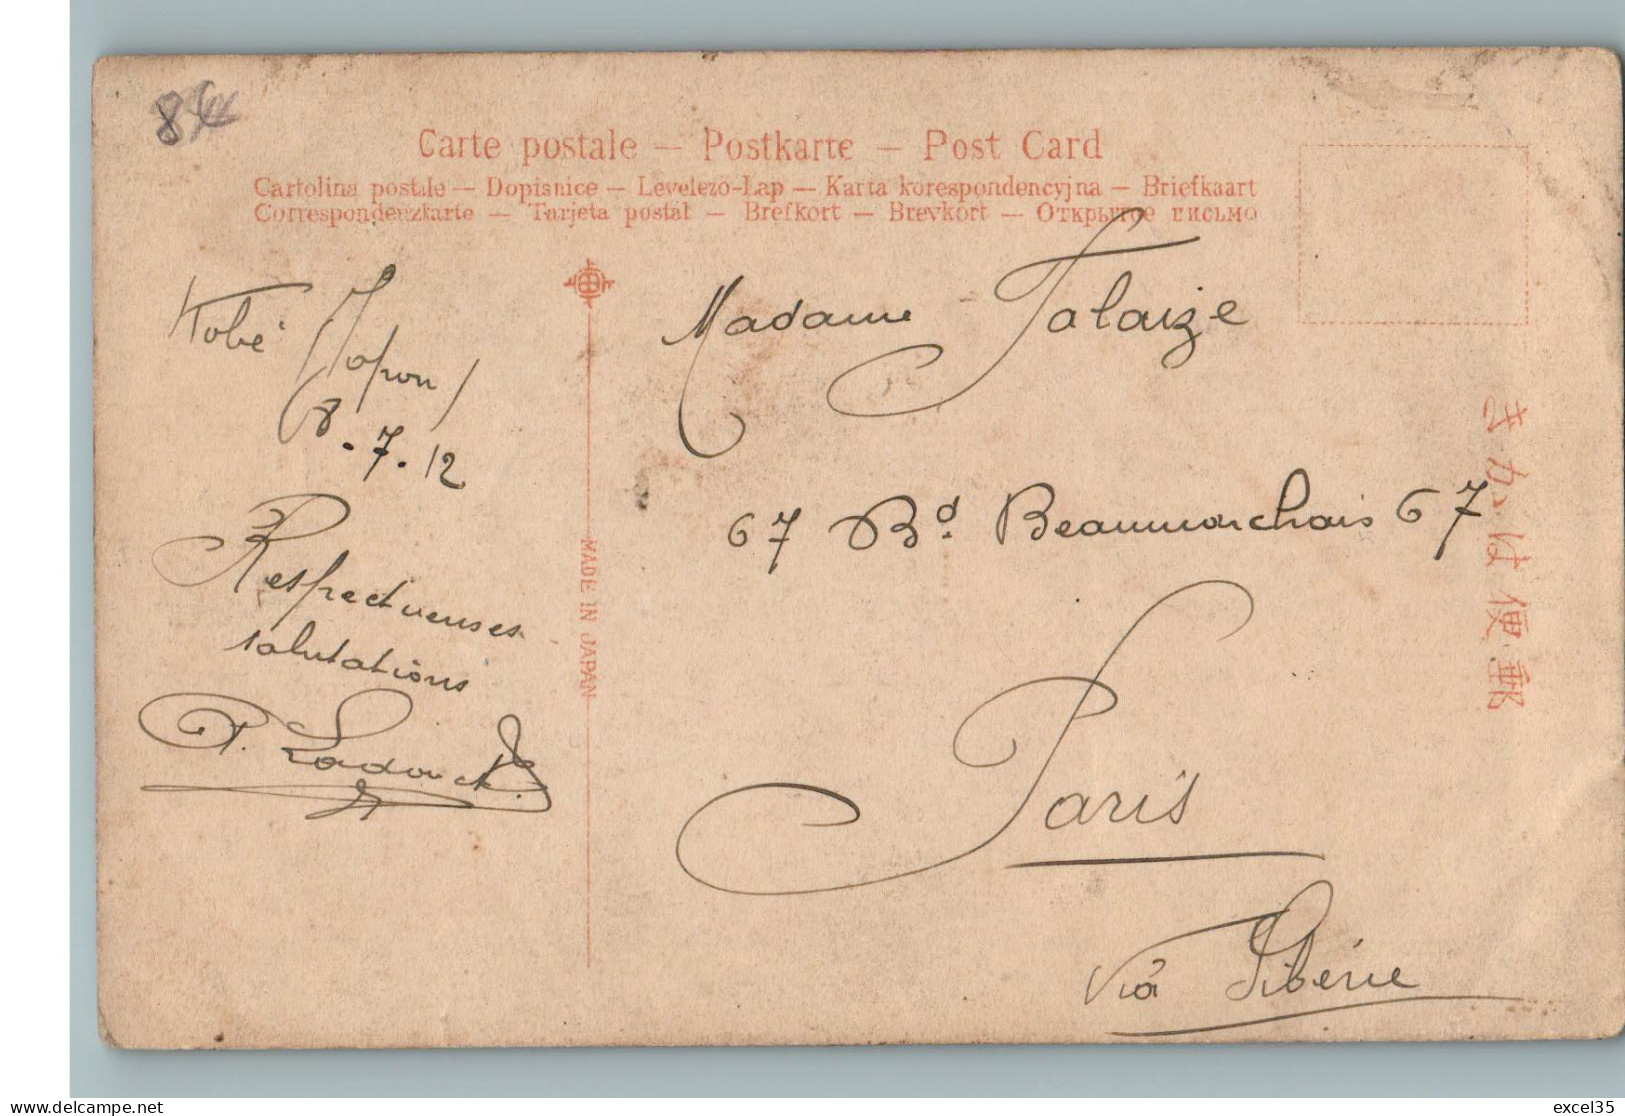 Carte postale — Postkarte — Post Card
Cartolina postale — Dopisnice — Levelezö-Lap — Karta korespondencyjna — Briefkaart
Correspondenzkarte — Tarjeta postal — Brefkort — Brevkort — Открытое письмо
Kobé (Japon)
8.7.12
Respectueuses
salutations
MADE IN JAPAN
Madame Falaize
67 Bd. Beaumarchais 67
Paris
Viâ Sibérie
きかは便郵
www.delcampe.net
excel35